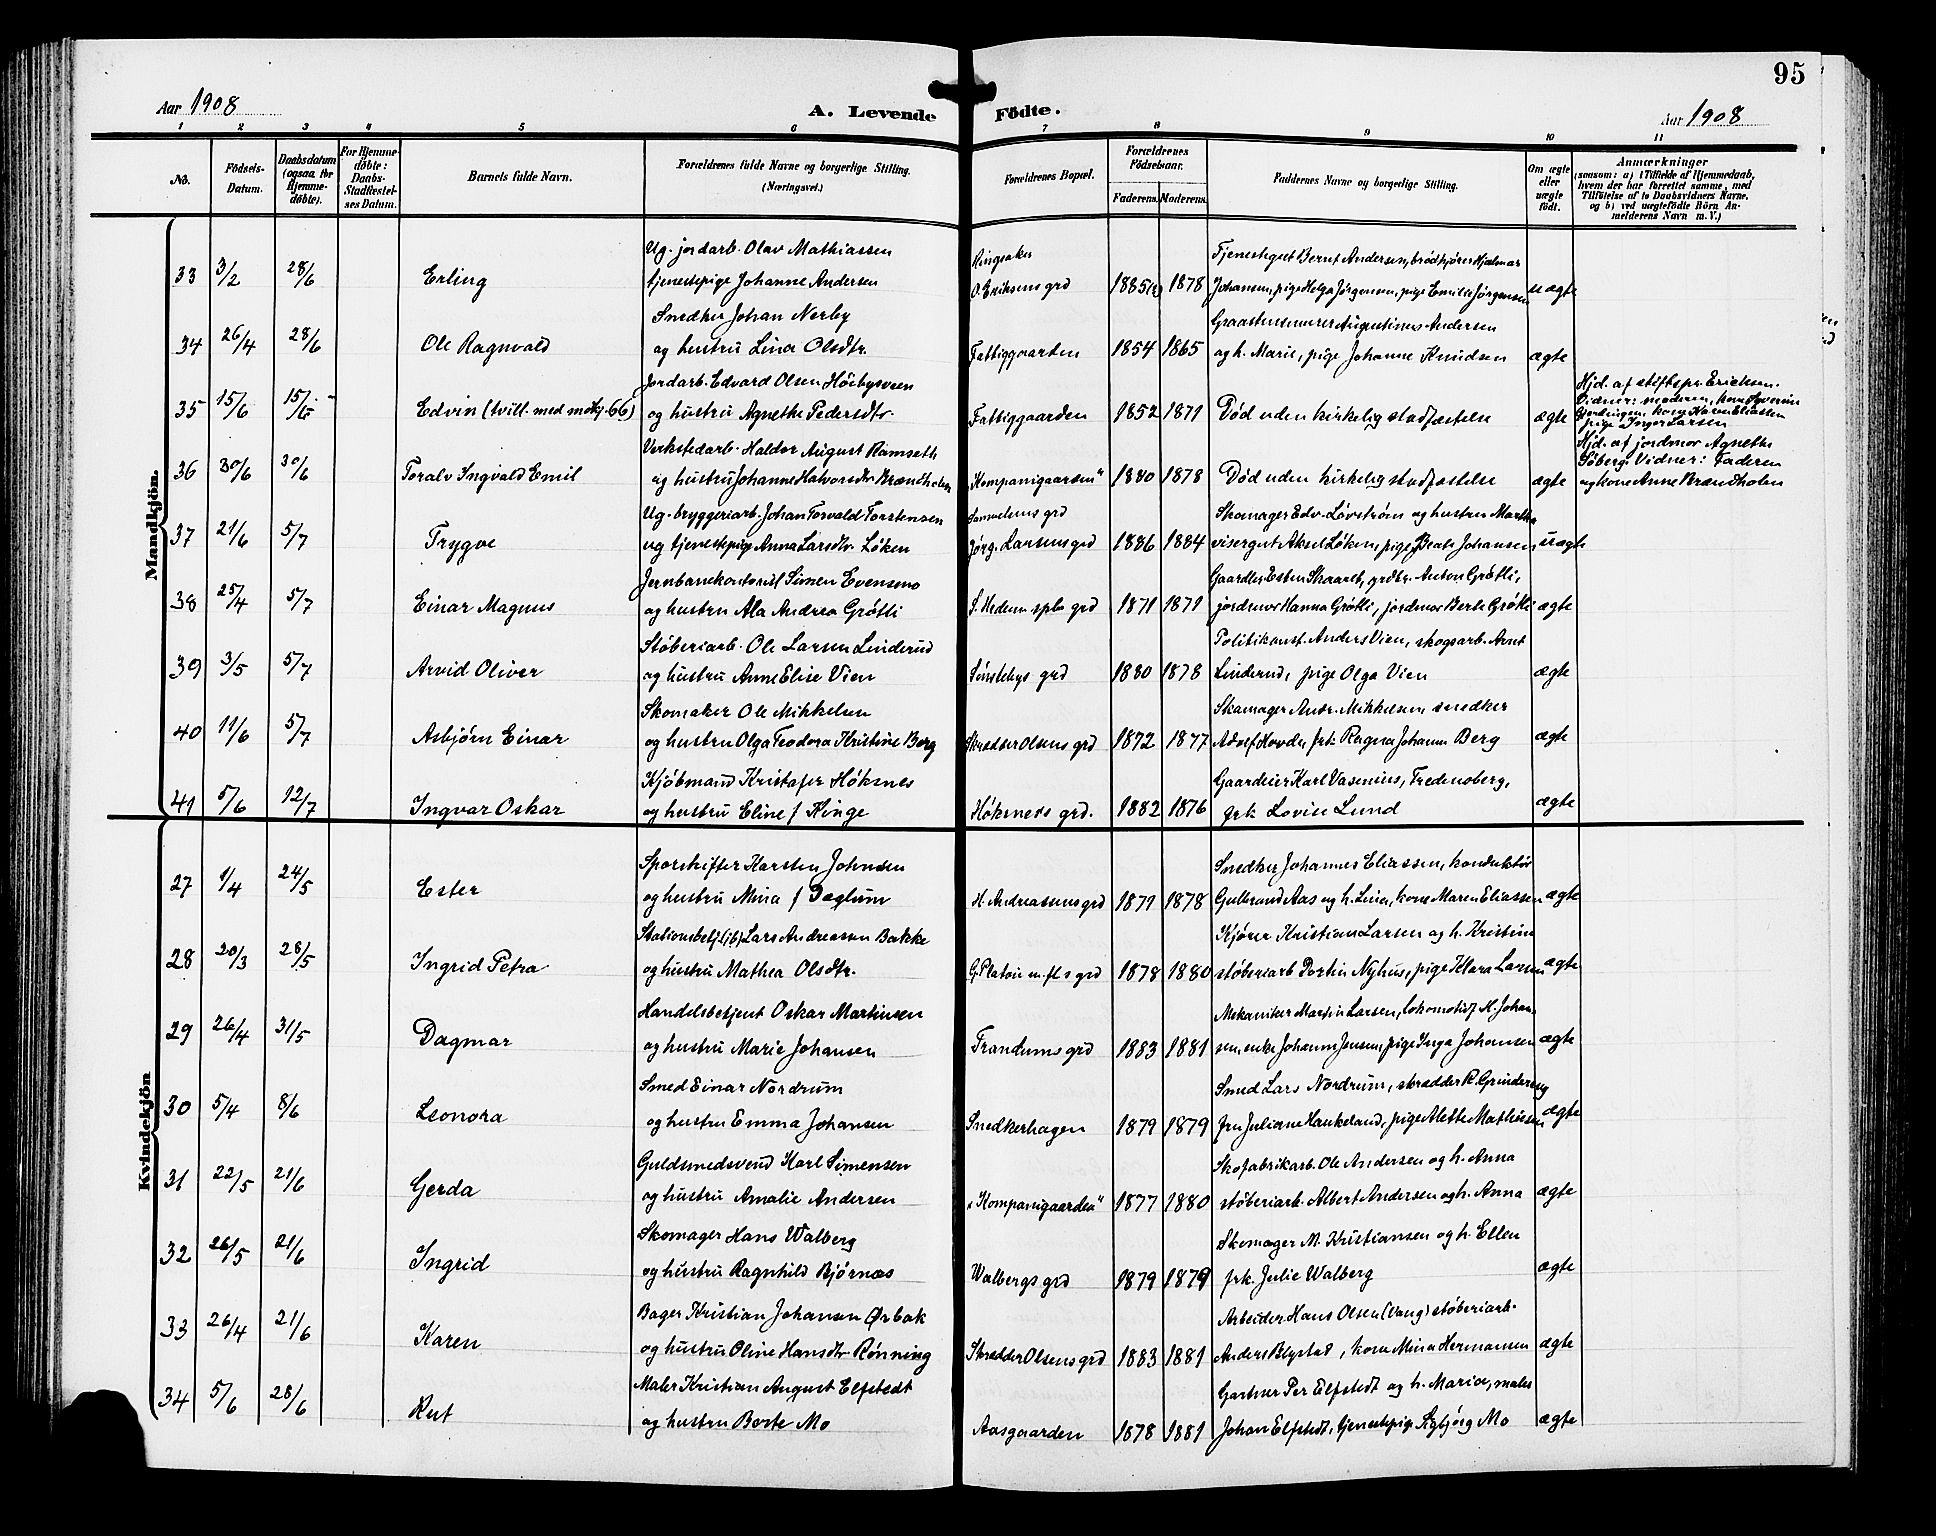 95
Aar 1908
A. Levende
Födte.
Aar 1908
1 2 3 4 5 6 7 8 9 10 11
No.
Födsels-Datum.
Daabsdatum (ogsaa for Hjemme-döbte).
For Hjemme-döbte: Daabs-Stadfæstel-ses Datum.
Barnets fulde Navn.
Forældrenes fulde Navne og borgerlige Stilling.
(Næringsvei.)
Forældrenes Bopæl.
Forældrenes Födselsaar.
Faderens. Moderens.
Faddernes Navne og borgerlige Stilling.
Om ægte eller uægte födt.
Anmærkninger
(saasom: a) i Tilfælde af Hjemmedaab, hvem der har forrettet samme, med Tilföielse af to Daabsvidners Navne, og b) ved uægtefödte Börn An-melderens Navn m. V.)
Mandkjön.
Ug. jordarb. Olav Mathiassen Ringsaker Tjenestegut Bernt Andersen, brödkjörer Hjalmar
33 3/2 28/6 Erling tjenestepige Johanne Andersen O. Eriksens grd 1885 1878 Johansen, pige Helga Jörgensen, pige Emilie Jörgensen uægte
Snedker Johan Nerby Graastensmurer Augustinus Andersen
34 26/4 28/6 Ole Ragnvald og hustru Lina Olsdtr. Fattiggaarden 1854 1865 og h. Marie, pige Johanne Knudsen ægte
Jordarb. Edvard Olsen Höibysveen Hjd. af stiftspr. Ericksen.
35 15/6 15/6 Edvin (tvill. med 66) og hustru Agnethe Pedersdtr. Fattiggaarden 1852 1871 Död uden kirkelig stadfæstelse ægte Vidner: moderen, kone Karen Eliassen pige Inger Larsen
Verkstedarb. Haldor August Ramseth Hjd. af jordmor Agnethe
36 30/6 30/6 Toralv Ingvald Emil og hustru Johanne Halvorsdtr. Brændholen "Kompanigaarden" 1880 1878 Död uden kirkelig stadfæstelse ægte Söberg. Vidner: Faderen og kone Anne Brændholen
Ug. bryggeriarb. Johan Torvald Torstensen Samuelsens grd Skomager Edv. Lövström og hustru Martha
37 21/6 5/7 Trygve og tjenestepige Anna Larsdtr. Löken Jörg. Larsens grd 1886 1884 visergut Aksel Löken, pige Beate Johansen uægte
Jernbanekontorist Simen Evensmo Gaardbr. Esten Skaaret, grdbr. Anton Grötli,
38 25/4 5/7 Einar Magnus og hustru Ala Andrea Grötli S. Hedem. spb. grd 1871 1871 jordmor Hanna Grötli, jordmor Berte Grötli ægte
Stöberiarb. Ole Larsen Linderud Politikonst. Anders Vien, skogsarb. Arnt
39 3/5 5/7 Arvid Oliver og hustru Anne Elise Vien Sönstebys grd 1880 1878 Linderud, pige Olga Vien ægte
Skomaker Ole Mikkelsen Skomager Andr. Mikkelsen snedker
40 11/6 5/7 Asbjörn Einar og hustru Olga Teodora Kristine Berg Skrædder Olsens grd 1872 1877 Adolf Hovde, frk. Ragna Johanne Berg ægte
Kjöbmand Kristofer Höksnes Gaardeier Karl Vasenius, Fredensberg,
41 5/6 12/7 Ingvar Oskar og hustru Eline f. Kinge Höksnes grd. 1882 1876 frk. Lovise Lund ægte
Kvindekjön
Sporskifter Karsten Johnsen Snedker Johannes Eliassen, konduktör
27 1/4 24/5 Ester og hustru Mina f. Daglum H. Andreassens grd 1871 1878 Gulbrand Aas og h. Lina, kone Maren Eliassen ægte
Stationsbetj. (jb) Lars Andreassen Bakke Kjörer Kristian Larsen og h. Kristine
28 20/3 28/5 Ingrid Petra og hustru Mathea Olsdtr. G. Platou m. fl. s grd 1878 1880 stöberiarb. Nyhus, pige Klara Larsen ægte
Handelsbetjent Oskar Martinsen Mekaniker Martin Larsen, lokomotivf. H. Johan-
29 26/4 31/5 Dagmar og hustru Marie Johansen Trandums grd 1883 1881 sen, enke Johanne Jensen, pige Inga Johansen ægte
Smed Einar Nordrum Smed Lars Nordrum, skrædder R. Grundereng
30 5/4 8/6 Leonora og hustru Emma Johansen Snedkerhagen 1879 1879 fru Juliane Haukeland, pige Alette Mathisen ægte
Guldsmedsvend Karl Simensen Skofabrikarb. Ole Andersen og h. Anna
31 22/5 21/6 Gerda og hustru Amalie Andersen "Kompanigaarden" 1877 1880 stöberiarb. Albert Andersen og h. Anna ægte
Skomager Hans Walberg Skomager M. Kristiansen og h. Ellen
32 26/5 21/6 Ingrid og hustru Ragnhild Bjørnæs Walbergs grd 1879 1879 frk. Julie Walberg ægte
Bager Kristian Johansen Ørbak Arbeider Hans Olsen (Vang) stöberiarb.
33 26/4 21/6 Karen og hustru Oline Hansdtr. Rönning Skrædder Olsens grd 1883 1881 Anders Blystad, kone Mina Hermansen ægte
Maler Kristian August Elfstedt Gartner Per Elfstedt og h. Maria, maler
34 5/6 28/6 Rut og hustru Borte Mo Aasgaarden 1878 1881 Johan Elfstedt, tjenestepige Sigbjörg Mo ægte